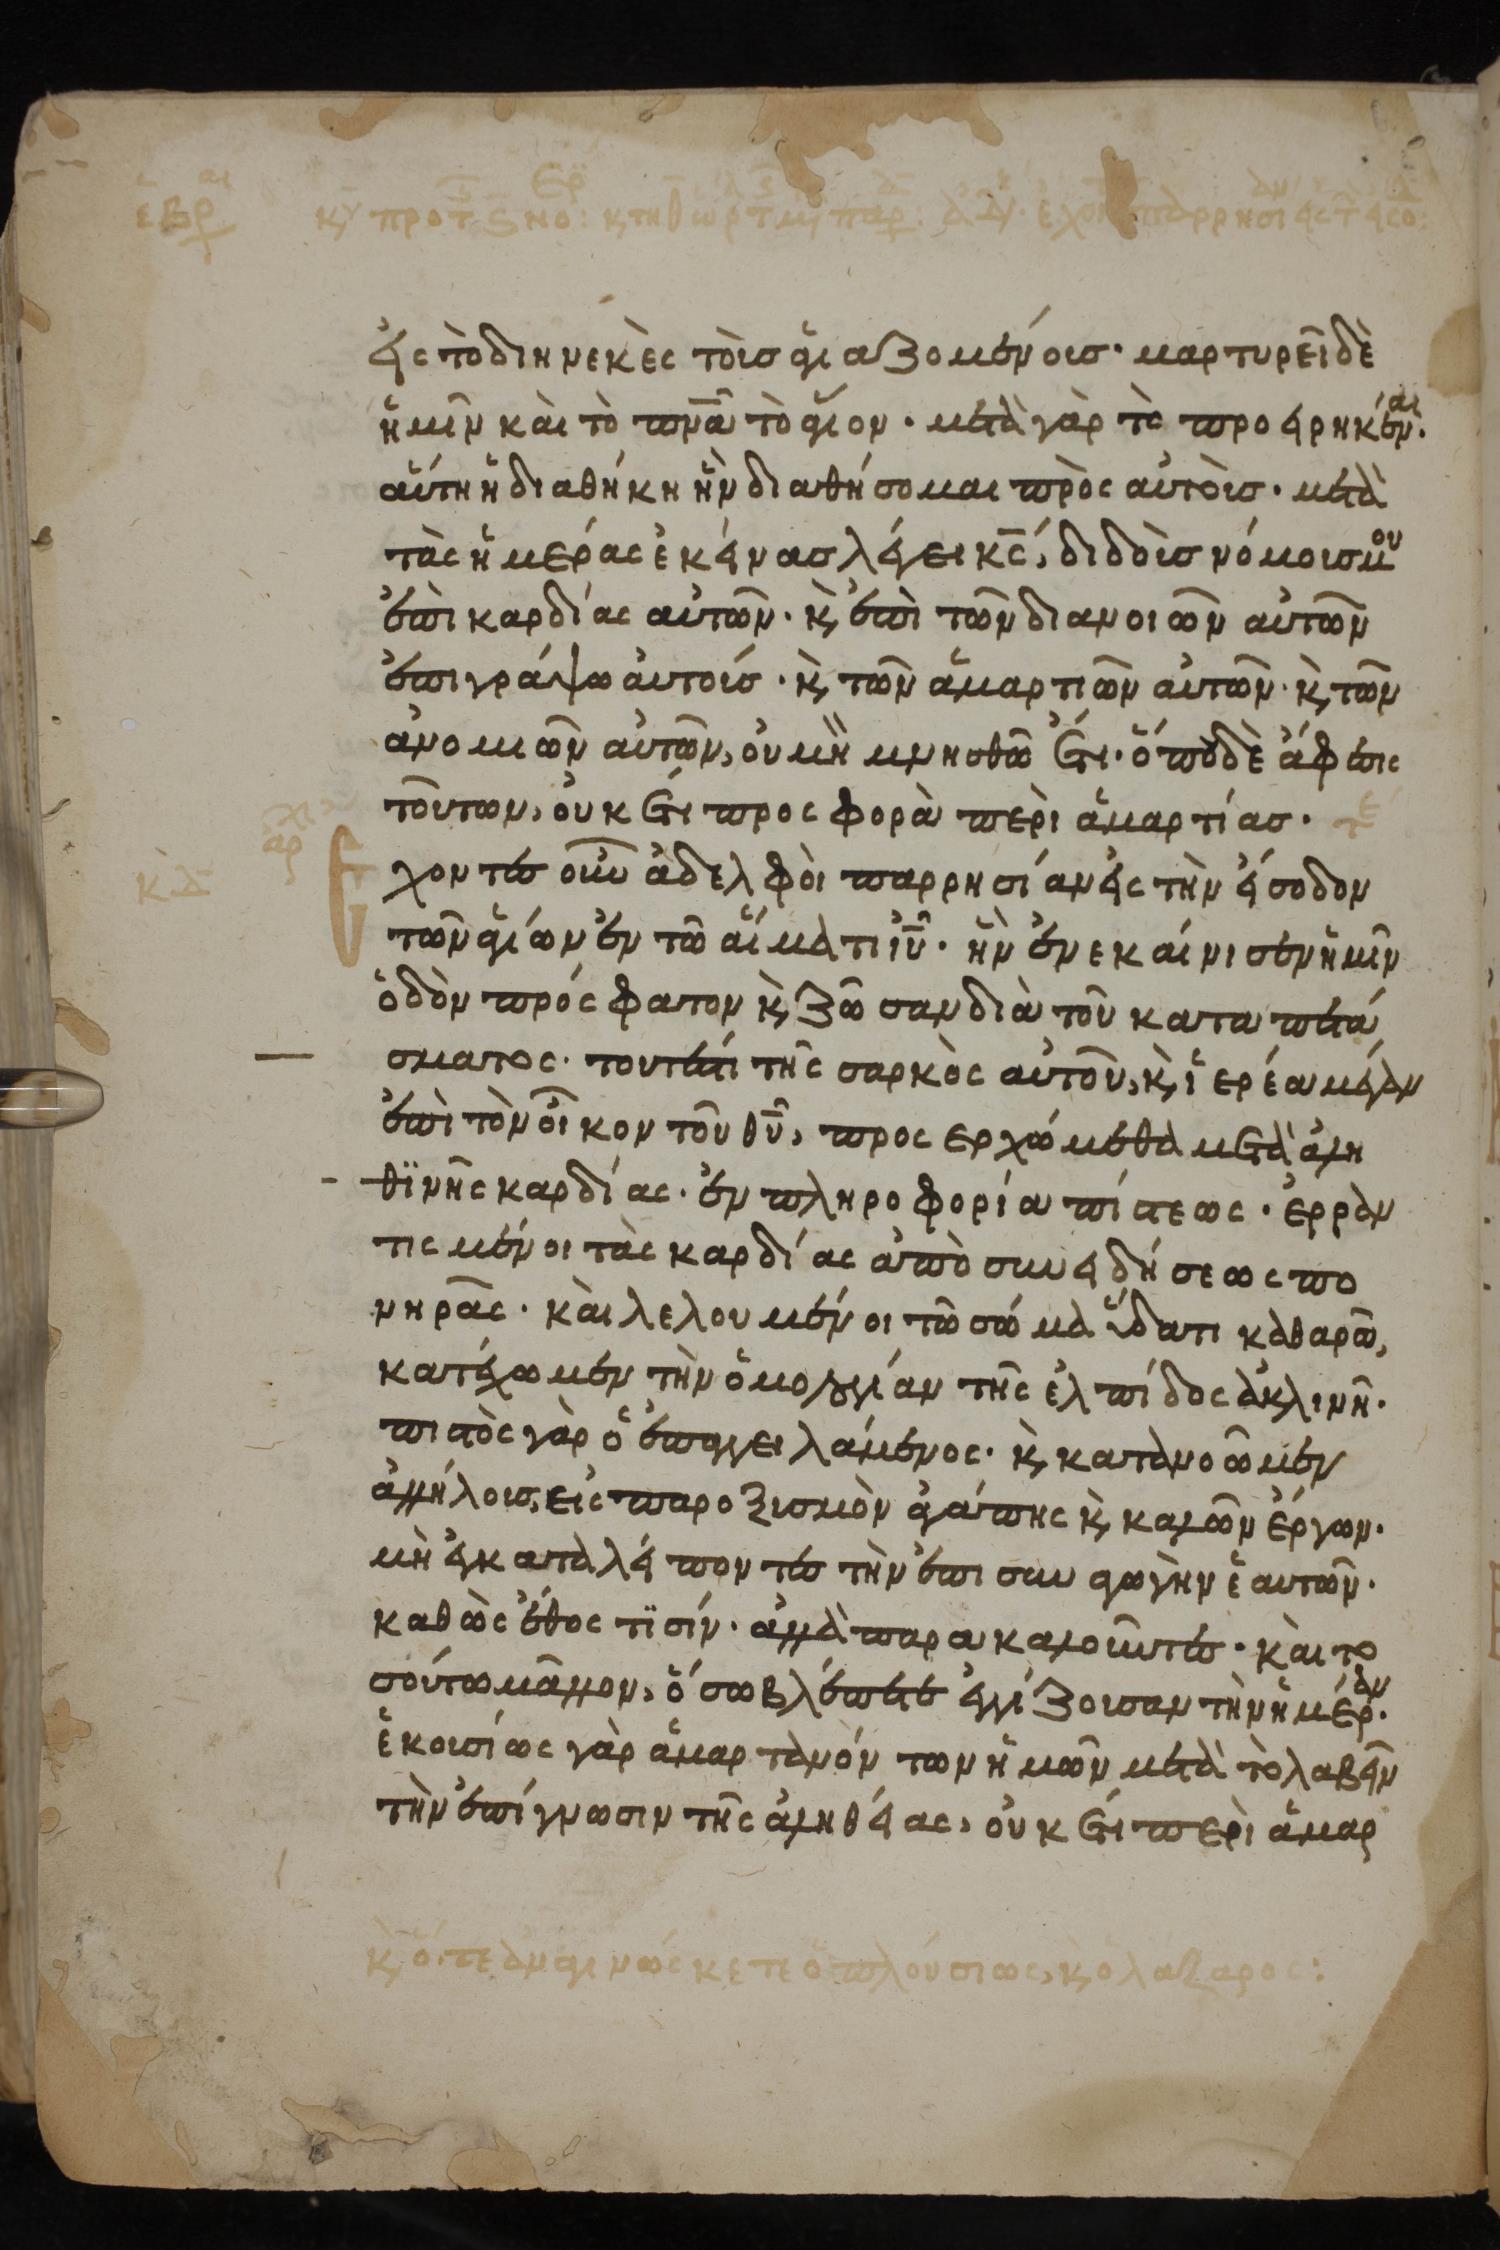 εἰς τὸ διηνεκὲς τοῖσ ἁγιαζομένοισ· μαρτυρεῖ δὲ
ἡμῖν καὶ τὸ πνᾶ τὸ ἅγιον· μετὰ γὰρ τὸ προειρηκέναι·
αὕτη ἡ διαθήκη ἣν διαθήσομαι πρὸς αὐτοὶσ· μετὰ
τὰς ἡμέρας ἐκείνασ λέγει κς̅, διδοὺσ νόμουσ μου
ἐπὶ καρδίας αὐτῶν· κὶ ἐπὶ τῶν διανοιῶν αὐτῶν
ἐπιγράψω αὐτούσ· κὶ τῶν ἁμαρτιῶν αὐτῶν· κὶ τῶν
ἀνομιῶν αὐτῶν, οὐ μὴ μνησθῶ ἔτι· ὅπου δὲ ἄφεσις
τοῦτων, οὐκ ἔτι προσφορὰ περὶ ἁμαρτίασ· τε
Ἔχοντεσ οὖν ἀδελφοὶ παρρησίαν εἰς τὴν εἴσοδον
τῶν ἁγίων ἐν τῶ αἵματι ἰυ̅· ἣν ἐνεκαίνισεν ἡμῖν
ὁδὸν πρόσφατον κὶ ζῶσαν διὰ τοῦ καταπετά
σματος· τουτέστι τῆς σαρκὸς αὐτοῦ, κὶ ἱερέα μέγαν
ἐπὶ τὸν οἶκον τοῦ θυ̅, προσερχώμεθα μετὰ ἀλη
θϊνῆς καρδίας· ἐν πληροφορία πίστεως· ἐρραν
τισμένοι τὰς καρδίας ἀπὸ συνειδήσεως πο
νηρᾶς· καὶ λελουμένοι τῶ σώμα ὕδατι καθαρῶ,
κατέχωμεν τὴν ὁμολογίαν τῆς ἐλπίδος ἀκλινῆ·
πιστὸς γὰρ ὁ ἐπαγγειλάμενος· κὶ κατανοῶμεν
ἀλλήλουσ, εἰς παροξισμὸν ἀγάπης κὶ καλῶν ἔργων·
μὴ ἐγκαταλείποντεσ τὴν ἐπισυναγωγὴν ἑαυτῶν·
καθὼς ἔθος τϊσίν· ἀλλὰ παρακαλοῦντεσ· καὶ το
σούτω μᾶλλον, ὅσω βλέπετε ἐγγίζουσαν τὴν ἡμέραν·
ἑκουσίως γὰρ ἁμαρτανόντων ἡμῶν μετὰ τὸ λαβεῖν
τὴν ἐπίγνωσιν τῆς ἀληθείας, οὐκ ἔτι περὶ ἁμαρ